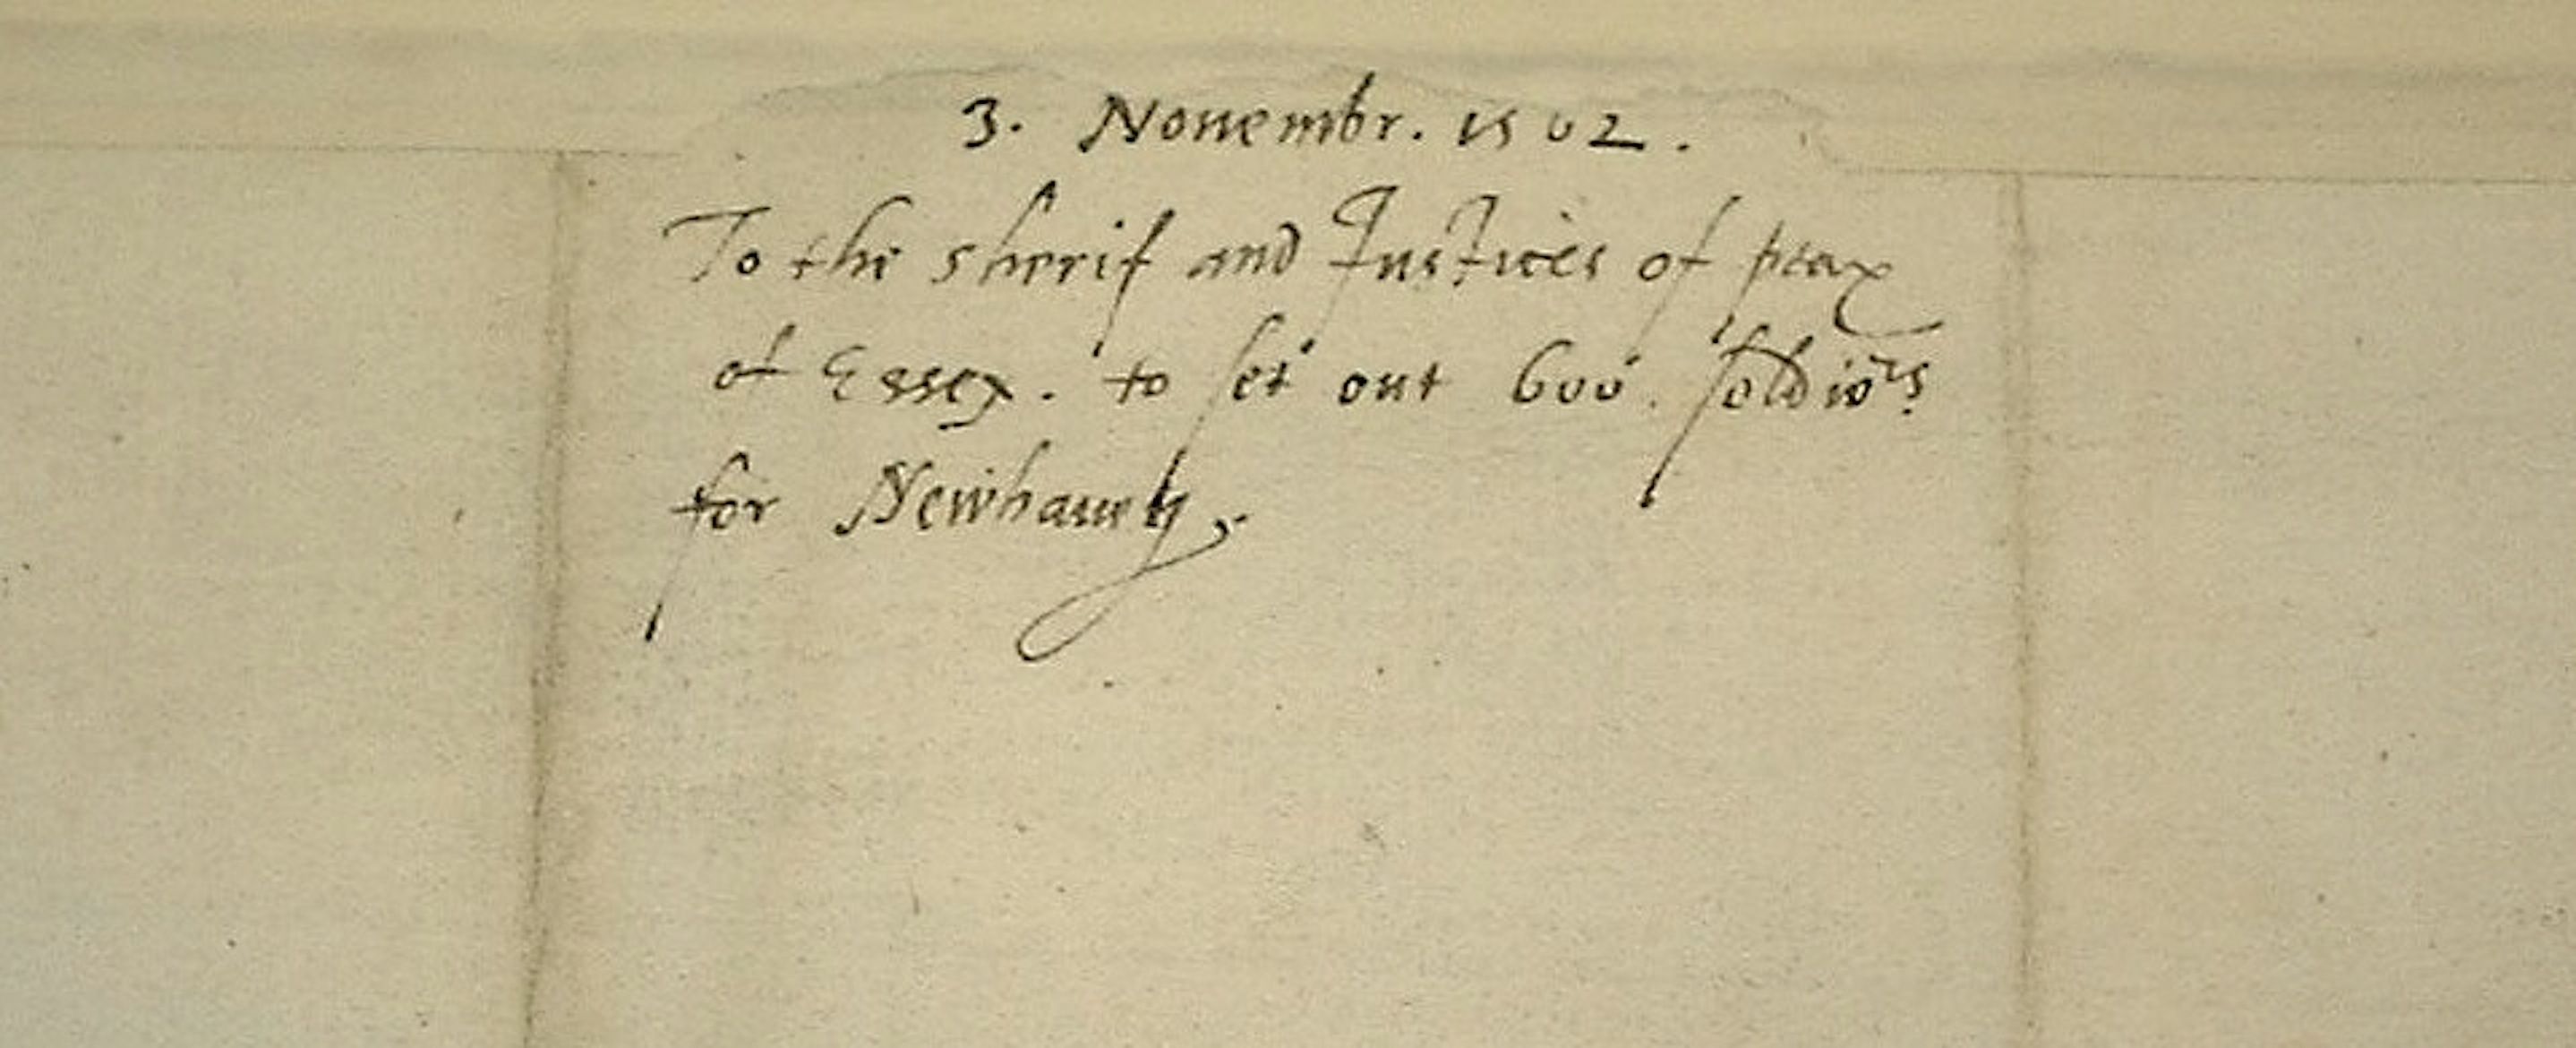 3. Nouembr. 1562.
To the sherif and Justices of peax
of Essex. to set out 600. soldiors
for Newhaven.